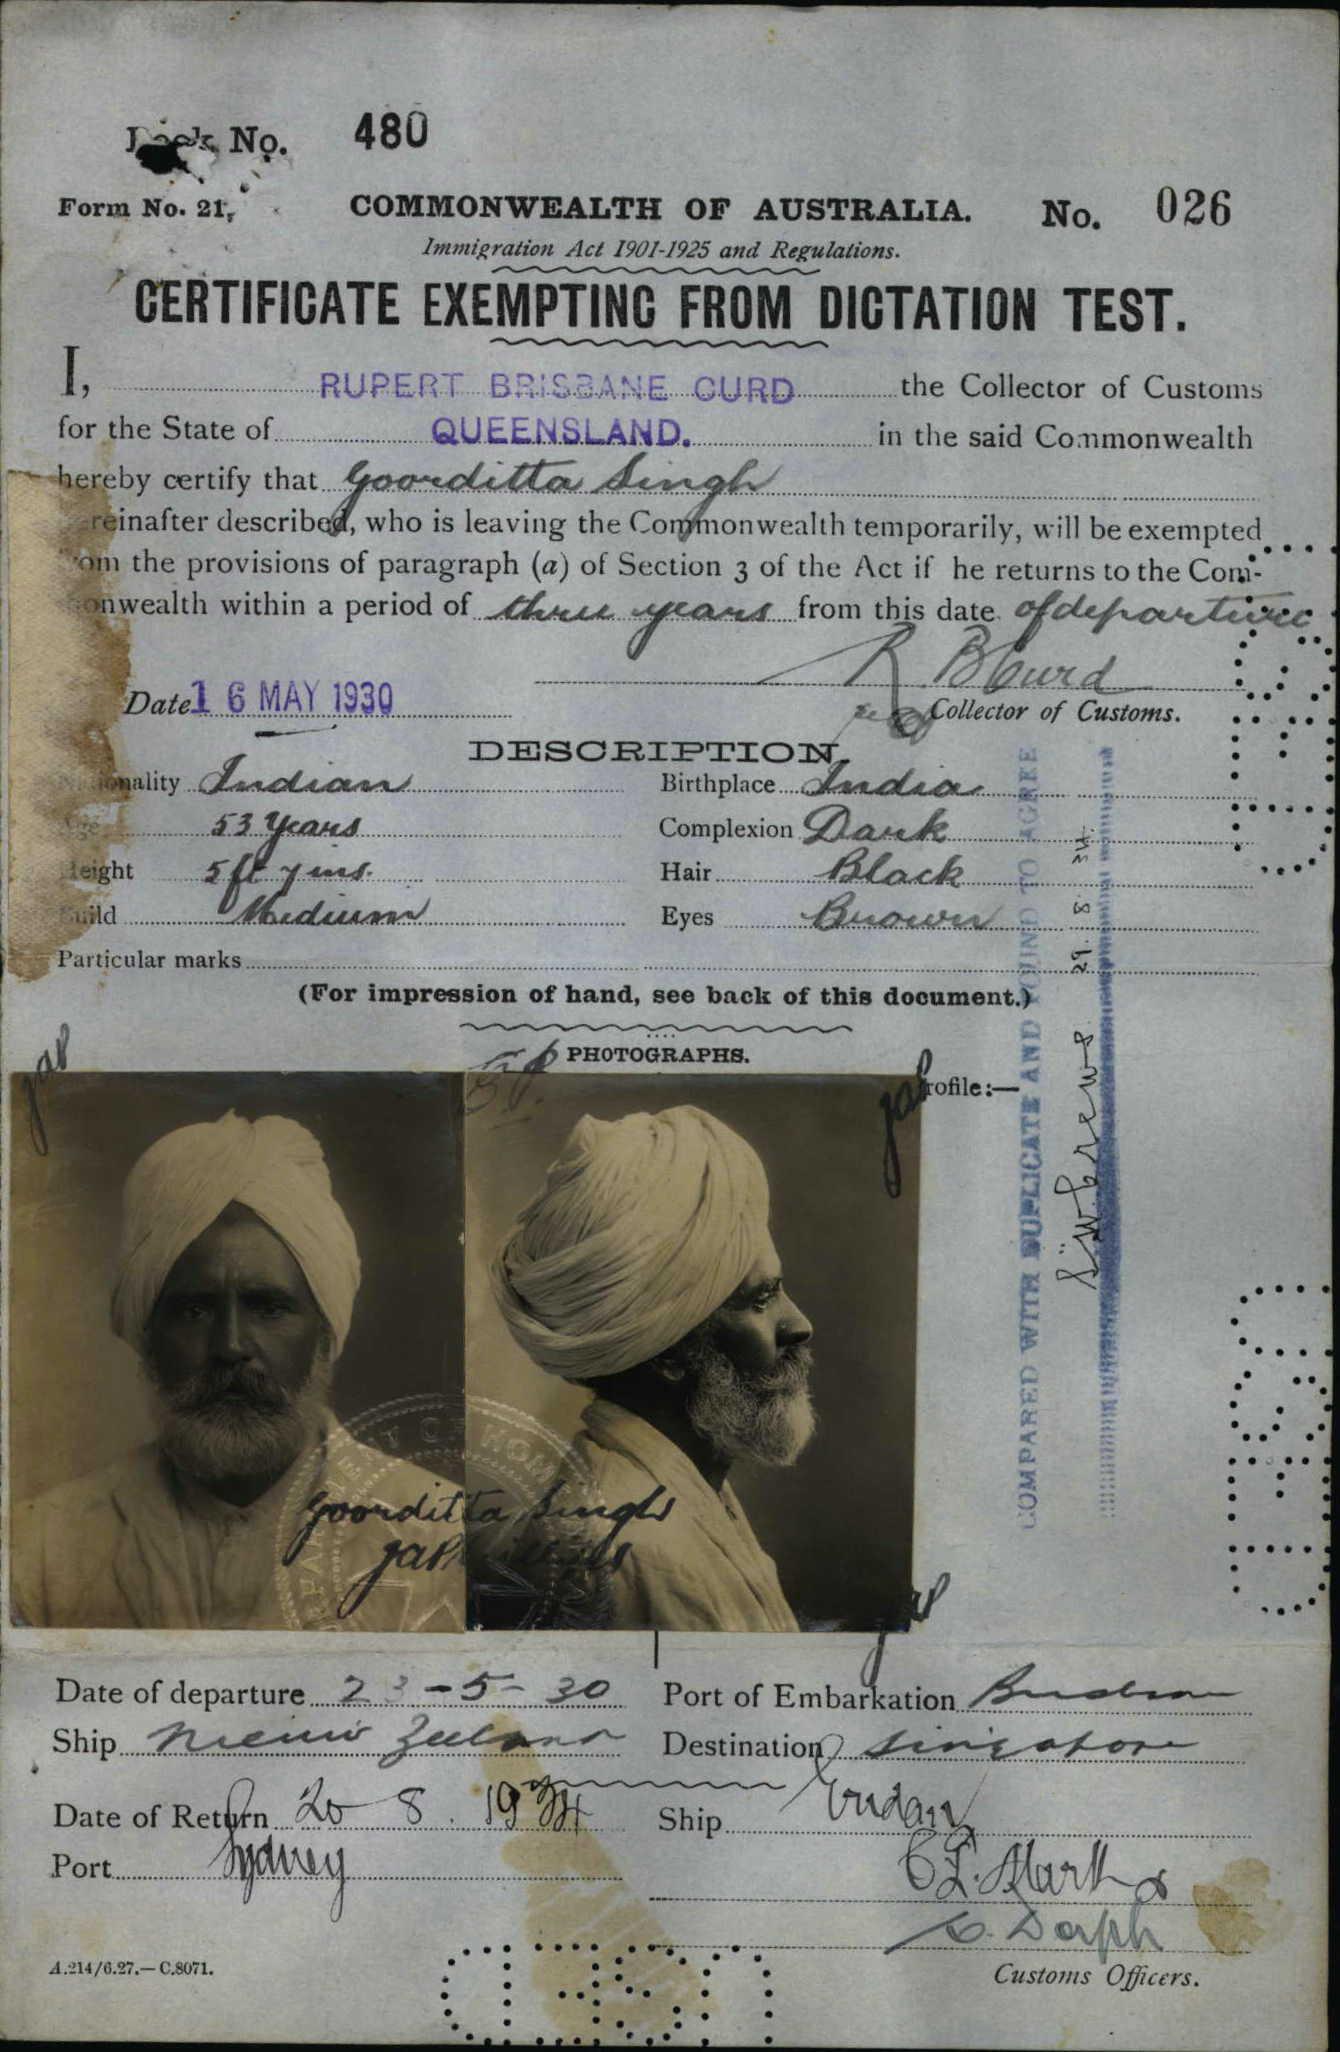 Book No. 480
Form No. 21. COMMONWEALTH OF AUSTRALIA. No. 026
Immigration Act 1901-1925 and Regulations.
CERTIFICATE EXEMPTING FROM DICTATION TEST.
I, RUPERT BRISBANE CURD the Collector of Customs
for the State of QUEENSLAND. in the said Commonwealth
hereby certify that Goorditta Singh
hereinafter described, who is leaving the Commonwealth temporarily, will be exempted
from the provisions of paragraph (a) of Section 3 of the Act if he returns to the Com-
monwealth within a period of three years from this date of departure
R B Curd
Date 16 MAY 1930 Collector of Customs.
DESCRIPTION.
Nationality Indian Birthplace India
Age 53 Years Complexion Dark
Height 5 ft 7 ins. Hair Black
Build Medium Eyes Brown
Particular marks
(For impression of hand, see back of this document.)
PHOTOGRAPHS.
rofile:—
COMPARED WITH DUPLICATE AND FOUND TO AGREE
29. 8 34.
Goorditta Singh
Date of departure 23-5-30 Port of Embarkation Brisbane
Ship Nieuw Zeeland Destination Singapore
Date of Return 20 8. 1934 Ship
Port Sydney
A.214/6.27.—C.8071. Customs Officers.